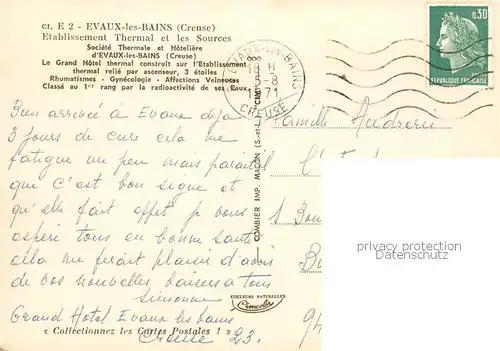 CI. E 2 - EVAUX-les-BAINS (Creuse)
Etablissement Thermal et les Sources
Société Thermale et Hôtelière
d'EVAUX-les-BAINS (Creuse)
Le Grand Hôtel thermal construit sur l'Etablissement
thermal relié par ascenseur, 3 étoiles
Rhumatismes - Gynécologie - Affections Veineuses
Classé au 1er rang par la radioactivité de ses Eaux
EVAUX-les-BAINS
18 H
5-8
1971
CREUSE
0,30
REPUBLIQUE FRANCAISE
Bien arrivée à Evaux déja
3 jours de cure cela me
fatigue un peu mais parait il
que c'est bon signe et
qu'elle fait effet je vous
espère tous en bonne santé
cela me ferait plaisir d'avoir
de vos nouvelles, baisers a tous
Simonne
Grand Hotel Evaux les bains
Creuse 23.
Famille
1 Bou
94
COMBIER IMP. MACON (S.-et-L.)
COULEURS NATURELLES
Cimcolor
« Collectionnez les Cartes Postales ! »
privacy protection
Datenschutz